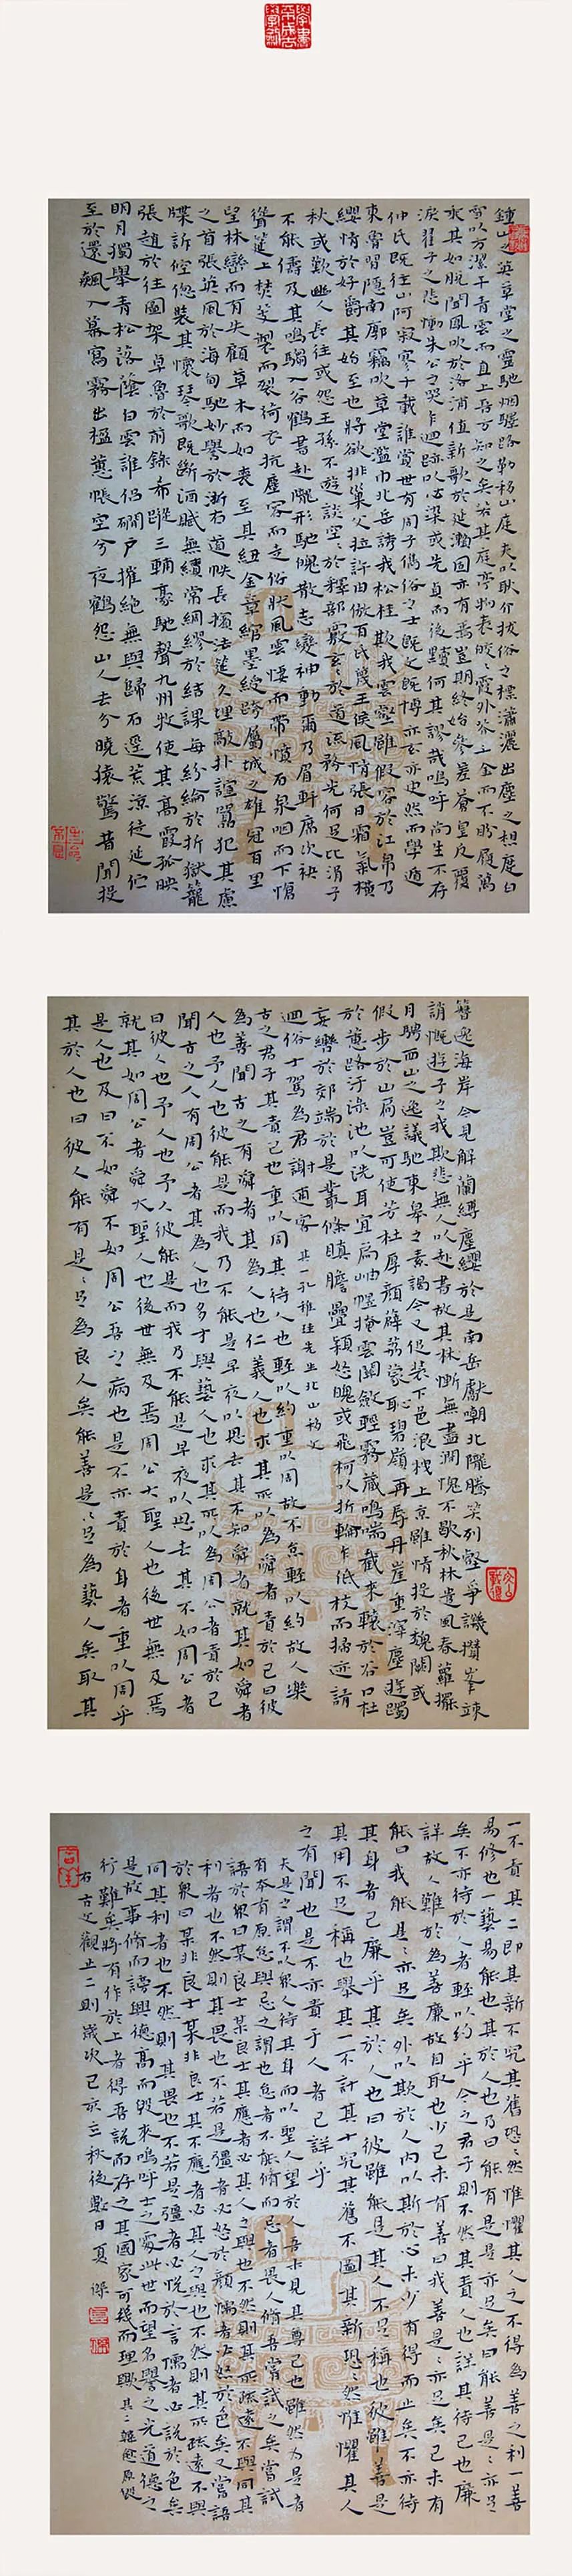 鍾山之英草堂之靈馳烟驛路勒移山庭夫以耿介拔俗之標瀟灑出塵之想度白
雪以方潔干青雲而直上吾方知之矣若其庭亭物表皎〻霞外芥千金而不盼屣萬
乘其如脫聞鳳吹於洛浦值薪歌於延瀨固亦有焉豈期終始參差蒼皇反覆
淚翟子之悲慟朱公之哭乍迴跡以心染或先貞而後黷何其謬哉嗚呼尚生不存
仲氏既往山阿寂寥千載誰賞世有周子儁俗之士既文既博亦玄亦史然而學遁
東魯習隱南郭竊吹草堂濫巾北岳誘我松桂欺我雲壑雖假容於江皋乃
纓情於好爵其始至也將欲排巢父拉許由傲百氏蔑王侯風情張日霜氣橫
秋或歎幽人長往或怨王孫不遊談空〻於釋部覈玄〻於道流務光何足比涓子
不能儔及其鳴騶入谷鶴書赴隴形馳魄散志變神動爾乃眉軒席次袂
聳筵上焚芰製而裂荷衣抗塵容而走俗狀風雲悽而帶憤石泉咽而下愴
望林巒而有失顧草木而如喪至其紐金章綰墨綬跨屬城之雄冠百里
之首張英風於海甸馳妙譽於浙右道帙長擯法筵久埋敲扑諠囂犯其慮
牒訴倥傯裝其懷琴歌既斷酒賦無續常綢繆於結課每紛綸於折獄籠
張趙於往圖架卓魯於前錄希蹤三輔豪馳聲九州牧使其高霞孤映
明月獨舉青松落蔭白雲誰侶磵戶摧絕無與歸石逕荒涼徒延佇
至於還飆入幕寫霧出楹蕙帳空兮夜鶴怨山人去兮曉猿驚昔聞投
簪逸海岸今見解蘭縛塵纓於是南岳獻嘲北隴騰笑列壑爭譏攢峯竦
誚慨遊子之我欺悲無人以赴書故其林慚無盡澗愧不歇秋桂遣風春蘿擺
月騁西山之逸議馳東皋之素謁今又促裝下邑浪栧上京雖情投於魏闕或
假步於山扃豈可使芳杜厚顏薜荔蒙恥碧嶺再辱丹崖重滓塵遊躅
於蕙路汙淥池以洗耳宜扃岫幌掩雲關斂輕霧藏鳴湍截來轅於谷口杜
妄轡於郊端於是叢條瞋膽疊穎怒魄或飛柯以折輪乍低枝而掃迹請
迴俗士駕為君謝逋客 其一孔稚珪先生北山移文
古之君子其責己也重以周其待人也輕以約重以周故不怠輕以約故人樂
為善聞古之有舜者其為人也仁義人也求其所以為舜者責於己曰彼
人也予人也彼能是而我乃不能是早夜以思去其不如舜者就其如舜者
聞古之人有周公者其為人也多才與藝人也求其所以為周公者責於己
曰彼人也予人也彼能是而我乃不能是早夜以思去其不如周公者
就其如周公者舜大聖人也後世無及焉周公大聖人也後世無及焉
是人也乃曰不如舜不如周公吾之病也是不亦責於身者重以周乎
其於人也曰彼人能有是〻足為良人矣能善是〻足為藝人矣取其
一不責其二即其新不究其舊恐〻然惟懼其人之不得為善之利一善
易修也一藝易能也其於人也乃曰能有是是亦足矣曰能善是〻亦足
矣不亦待於人者輕以約乎今之君子則不然其責人也詳其待己也廉
詳故人難於為善廉故自取也少己未有善曰我善是〻亦足矣己未有
能曰我能是〻亦足矣外以欺於人內以欺於心未少有得而止矣不亦待
其身者已廉乎其於人也曰彼雖能是其人不足稱也彼雖善是
其用不足稱也舉其一不計其十究其舊不圖其新恐〻然惟懼其人
之有聞也是不亦責于人者已詳乎
夫是之謂不以眾人待其身而以聖人望於人吾未見其尊己也雖然為是者
有本有原怠與忌之謂也怠者不能修而忌者畏人修吾嘗試之矣嘗試
語於眾曰某良士某良士其應者必其人之與也不然則其所疏遠不與同其
利者也不然則其畏也不若是彊者必怒於言懦者必怒於色矣又嘗語
於眾曰某非良士某非良士其不應者必其人之與也不然則其所疏遠不與
同其利者也不然則其畏也不若是彊者必悅於言懦者必說於色矣
是故事修而謗興德高而毀來嗚呼士之處此世而望名譽之光道德之
行難矣將有作於上者得吾說而存之其國家可幾而理歟 其二韓愈原毀
右古文觀止二則歲次己亥立秋後數日夏傑